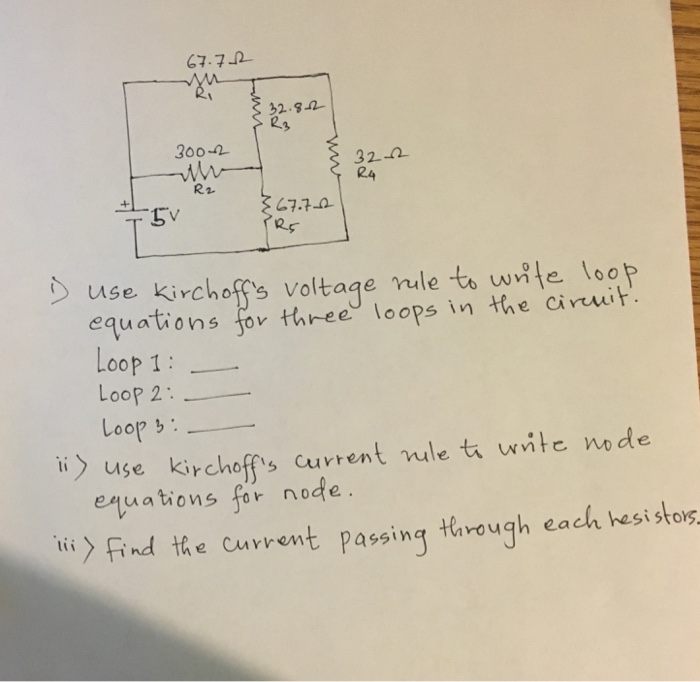 67.7Ω
R1
32.8Ω
R3
300Ω
R2
32Ω
R4
+
5V
67.7Ω
R5
i) use Kirchoff's voltage rule to write loop
equations for three loops in the circuit.
Loop 1: ___
Loop 2: ___
Loop 3: ___
ii) use Kirchoff's current rule to write node
equations for node.
iii) Find the current passing through each resistors.